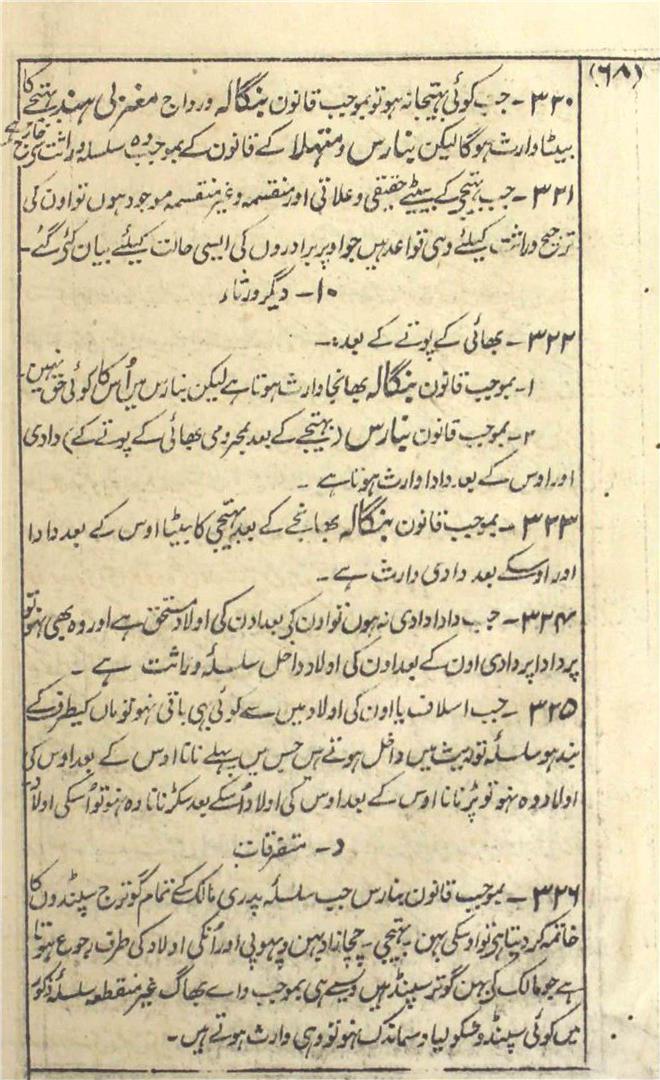 (۶۸)
۳۲۰ - جب کوئی بہتیجا نہ ہو تو بموجب قانون بنگالہ و رواج مغربی ہند بہتیجے کا
بیٹا وارث ہوگا لیکن بنارس و متہلا کے قانون کے بموجب وہ سلسلہ وراثت سے خارج ہے
۳۲۱ - جب بہتیجی کے بیٹے حقیقی و علاتی اور منقسمہ و غیر منقسمہ موجود ہوں تو اون کی
ترجیح وراثت کیلئے وہی قواعد ہیں جو اوپر برادروں کی ایسی حالت کیلئے بیان کئے گئے -
۱۰ - دیگر ورثاء
۳۲۲ - بھائی کے پوتے کے بعد :-
۱ - بموجب قانون بنگالہ بھانجا وارث ہوتا ہے لیکن بنارس میں اُس کا کوئی حق نہیں -
۲ - بموجب قانون بنارس (بہتیجے کے بعد بمحرومی بھائی کے پوتے کے) دادی
اور اوس کے بعد دادا وارث ہوتا ہے -
۳۲۳ - بموجب قانون بنگالہ بھانجے کے بعد بہتیجی کا بیٹا اوس کے بعد دادا
اور اوسکے بعد دادی وارث ہے -
۳۲۴ - جب دادا دادی نہ ہوں تو اون کی بعد اون کی اولاد مستحق ہے اور وہ بھی نہو تو
پردادا پردادی اون کے بعد اون کی اولاد داخل سلسلۂ وراثت ہے -
۳۲۵ - جب اسلاف یا اون کی اولاد میں سے کوئی بھی باقی نہو تو ماں کیطرف کے
بندہو سلسلۂ توریث میں داخل ہوتے ہیں جس میں پہلے نانا اوس کے بعد اوس کی
اولاد وہ نہو تو پڑنانا اوس کے بعد اوس کی اولاد اُسکے بعد سکڑنانا وہ نہو تو اُسکی اولاد
د - متفرقات
۳۲۶ - بموجب قانون بنارس جب سلسلۂ پدری مالک کے تمام گوترج سپنڈوں کا
خاتمہ کر دیتا ہی تو اوسکی بہن - بہتیجی - چچازاد بہن و پہوپی اور اُنکی اولاد کی طرف رجوع ہوتا
ہے جو مالک کی بہن گوتر سپنڈ ہیں ویسے ہی بموجب داے بھاگ غیر منقطعہ سلسلۂ ذکور
میں کوئی سپنڈ و سکولیا و سمانودک نہو تو وہی وارث ہوتے ہیں -